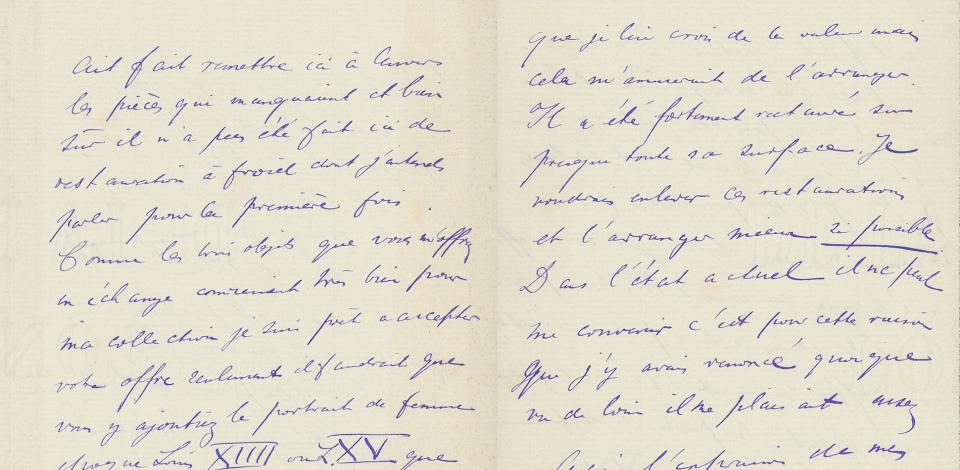 ait fait remettre ici à Anvers
les pièces qui manquaient et bien
sûr il n'a pas été fait ici de
restauration à froid dont j'entends
parler pour la première fois.
Comme les trois objets que vous m'offrez
en échange conviennent très bien pour
ma collection je suis prêt a accepter
votre offre seulement il faudrait que
vous y ajoutiez le portrait de femme
époque Louis XIIII ou L. XV que
que je lui crois de la valeur mais
cela m'amuserait de l'arranger.
Il a été fortement restauré sur
presque toute sa surface. Je
voudrais enlever ces restaurations
et l'arranger mieux si possible
Dans l'état actuel il ne peut
me convenir c'est pour cette raison
que j'y avais renoncé quoique
vu de loin il me plaisait assez
l'expression de mes